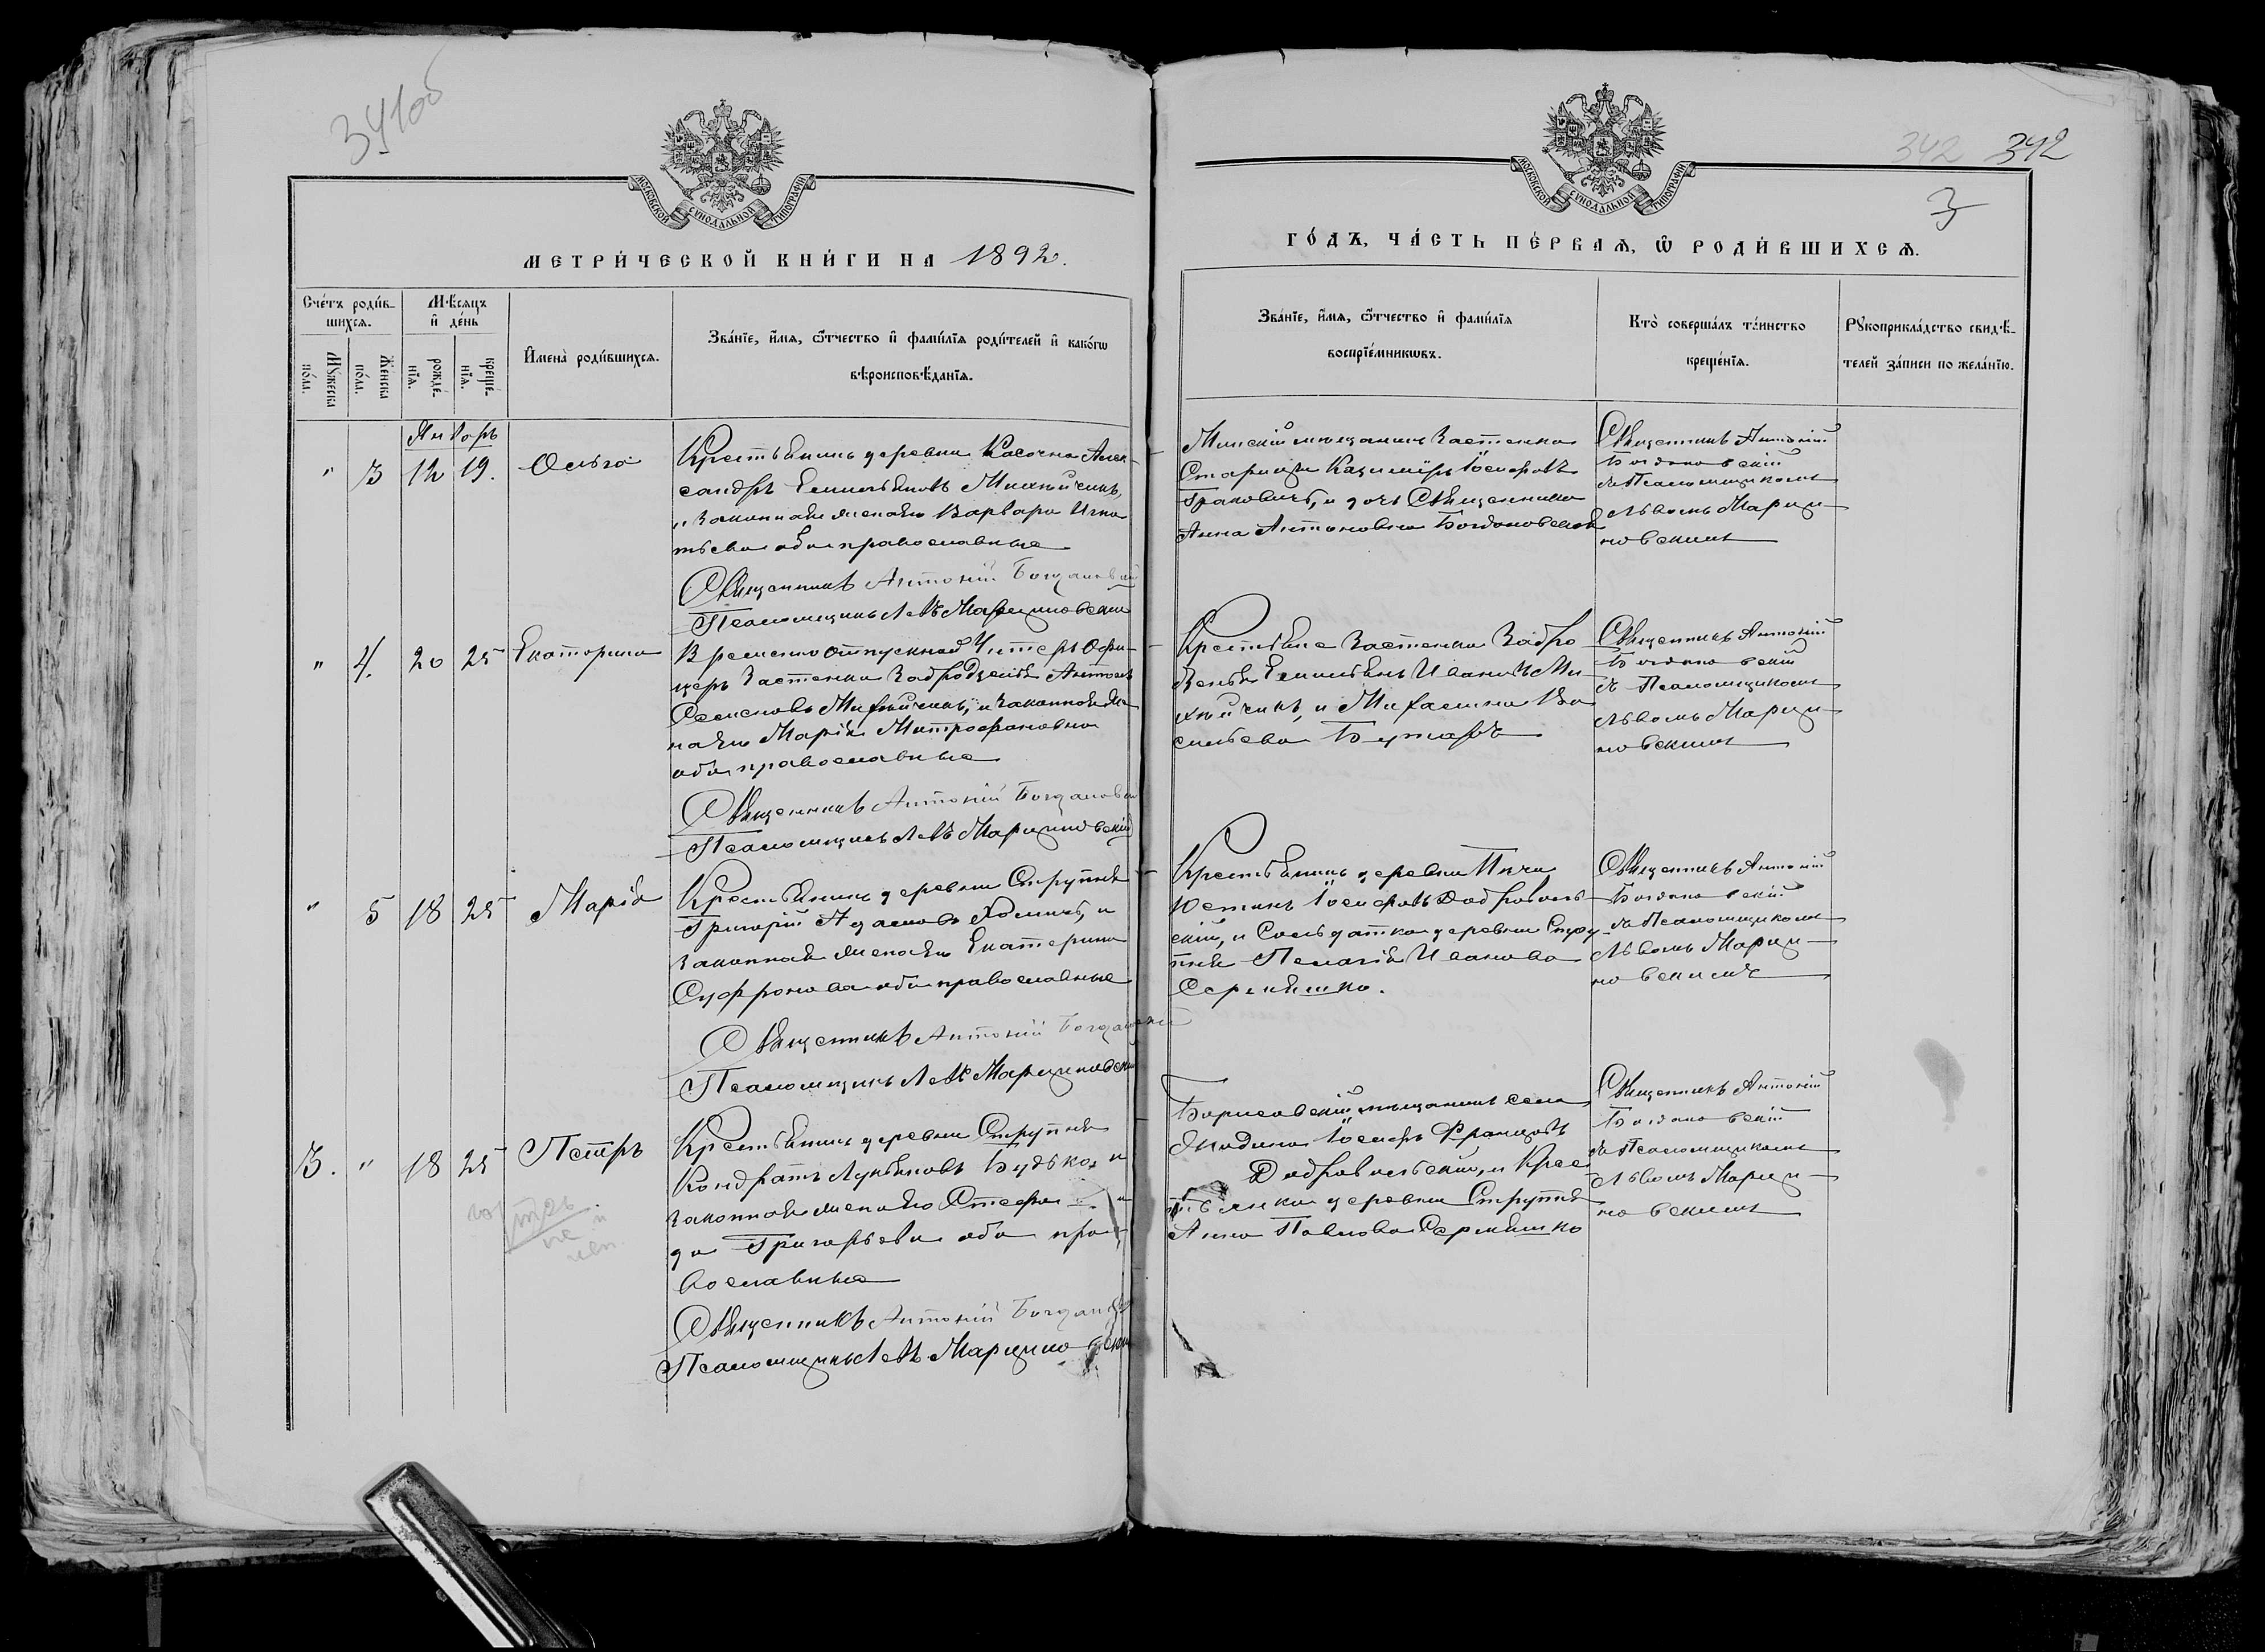 341об
МОСКОВСКОЙ СѴНОДАЛЬНОЙ ТИПОГРАФІИ
МЕТРИ́ЧЕСКОЙ КНИ́ГИ НА 1892.
Сче́тъ роди́в-
шихсѧ.
Мѣ́сѧцъ
и҆ де́нь
И҆мена̀ роди́вшихсѧ.
Зва́нїе, и҆́мѧ, ѻ҆́тчество и҆ фами́лїѧ роди́телей и҆ како́гѡ
вѣроисповѣ́данїѧ.
Мꙋ́жеска
по́ла.
Же́нска
по́ла.
рожде́-
нїѧ.
креще́-
нїѧ.
Январь
" 3 12 19. Ольга
Крестьянинъ деревни Касачна Алек-
сандръ Емильяновъ Михничикъ,
и законная жена его Варвара Игна
тьева оба православные
Священникъ Антоній Богдановскій
Псаломщикъ Левъ Марциновскій
" 4. 20 25 Екатерина
Временно отпускной Унтеръ Офи-
церъ Застенка Забродзелья Антонъ
Семеновъ Михничикъ, и законная же
на его Марія Митрофановна
оба православные
Священникъ Антоній Богдановскій
Псаломщикъ Левъ Марциновскій
" 5 18 25 Марія
Крестьянинъ деревни Струпня
Григорій Адамовъ Хомичъ, и
законная жена его Екатерина
Софронова оба православные
Священникъ Антоній Богдановскій
Псаломщикъ Левъ Марциновскій
3. " 18 25 Петръ
Крестьянинъ деревни Струпня
Кондратъ Лукьяновъ Будько, и
законная жена его Стефа
да Григорьева оба пра
вославные
Священникъ Антоній Богдановскій
Псаломщикъ Левъ Марциновскій
342 342
3
МОСКОВСКОЙ СѴНОДАЛЬНОЙ ТИПОГРАФІИ
ГО́ДЪ, ЧА́СТЬ ПЕ́РВАѦ, Ѡ҆ РОДИ́ВШИХСѦ.
Зва́нїе, и҆́мѧ, ѻ҆́тчество и҆ фами́лїѧ
воспрїе́мникѡвъ.
Кто̀ соверша́лъ та́инство
креще́нїѧ.
Рꙋкоприкла́дство свидѣ́-
телей за́писи по жела́нїю.
Минскій мѣщанинъ Застенка
Старицы Казиміръ Іосифовъ
Граковичъ, и дочь Священника
Анна Антоновна Богдановская
Священникъ Антоній
Богдановскій
съ Псаломщикомъ
Львомъ Марци-
новскимъ
Крестьяне Застенка Забро
дзелья Емильянъ Ивановъ Ми-
хничикъ, и Михалина Ва
сильева Бутаръ
Священникъ Антоній
Богдановскій
съ Псаломщикомъ
Львомъ Марци-
новскимъ
Крестьянинъ деревни Пичи
Юстинъ Іосифовъ Добровол-
скій, и Солдатка деревни Стру
пня Пелагія Иванова
Сермяжко.
Священникъ Антоній
Богдановскій
съ Псаломщикомъ
Львомъ Марци-
новскимъ
Борисовскій мѣщанинъ села
Жодина Іосифъ Францовъ
Добровольскій, и Крес
тьянка деревни Струпня
Анна Павлова Сермяжко
Священникъ Антоній
Богдановскій
съ Псаломщикомъ
Львомъ Марци-
новскимъ